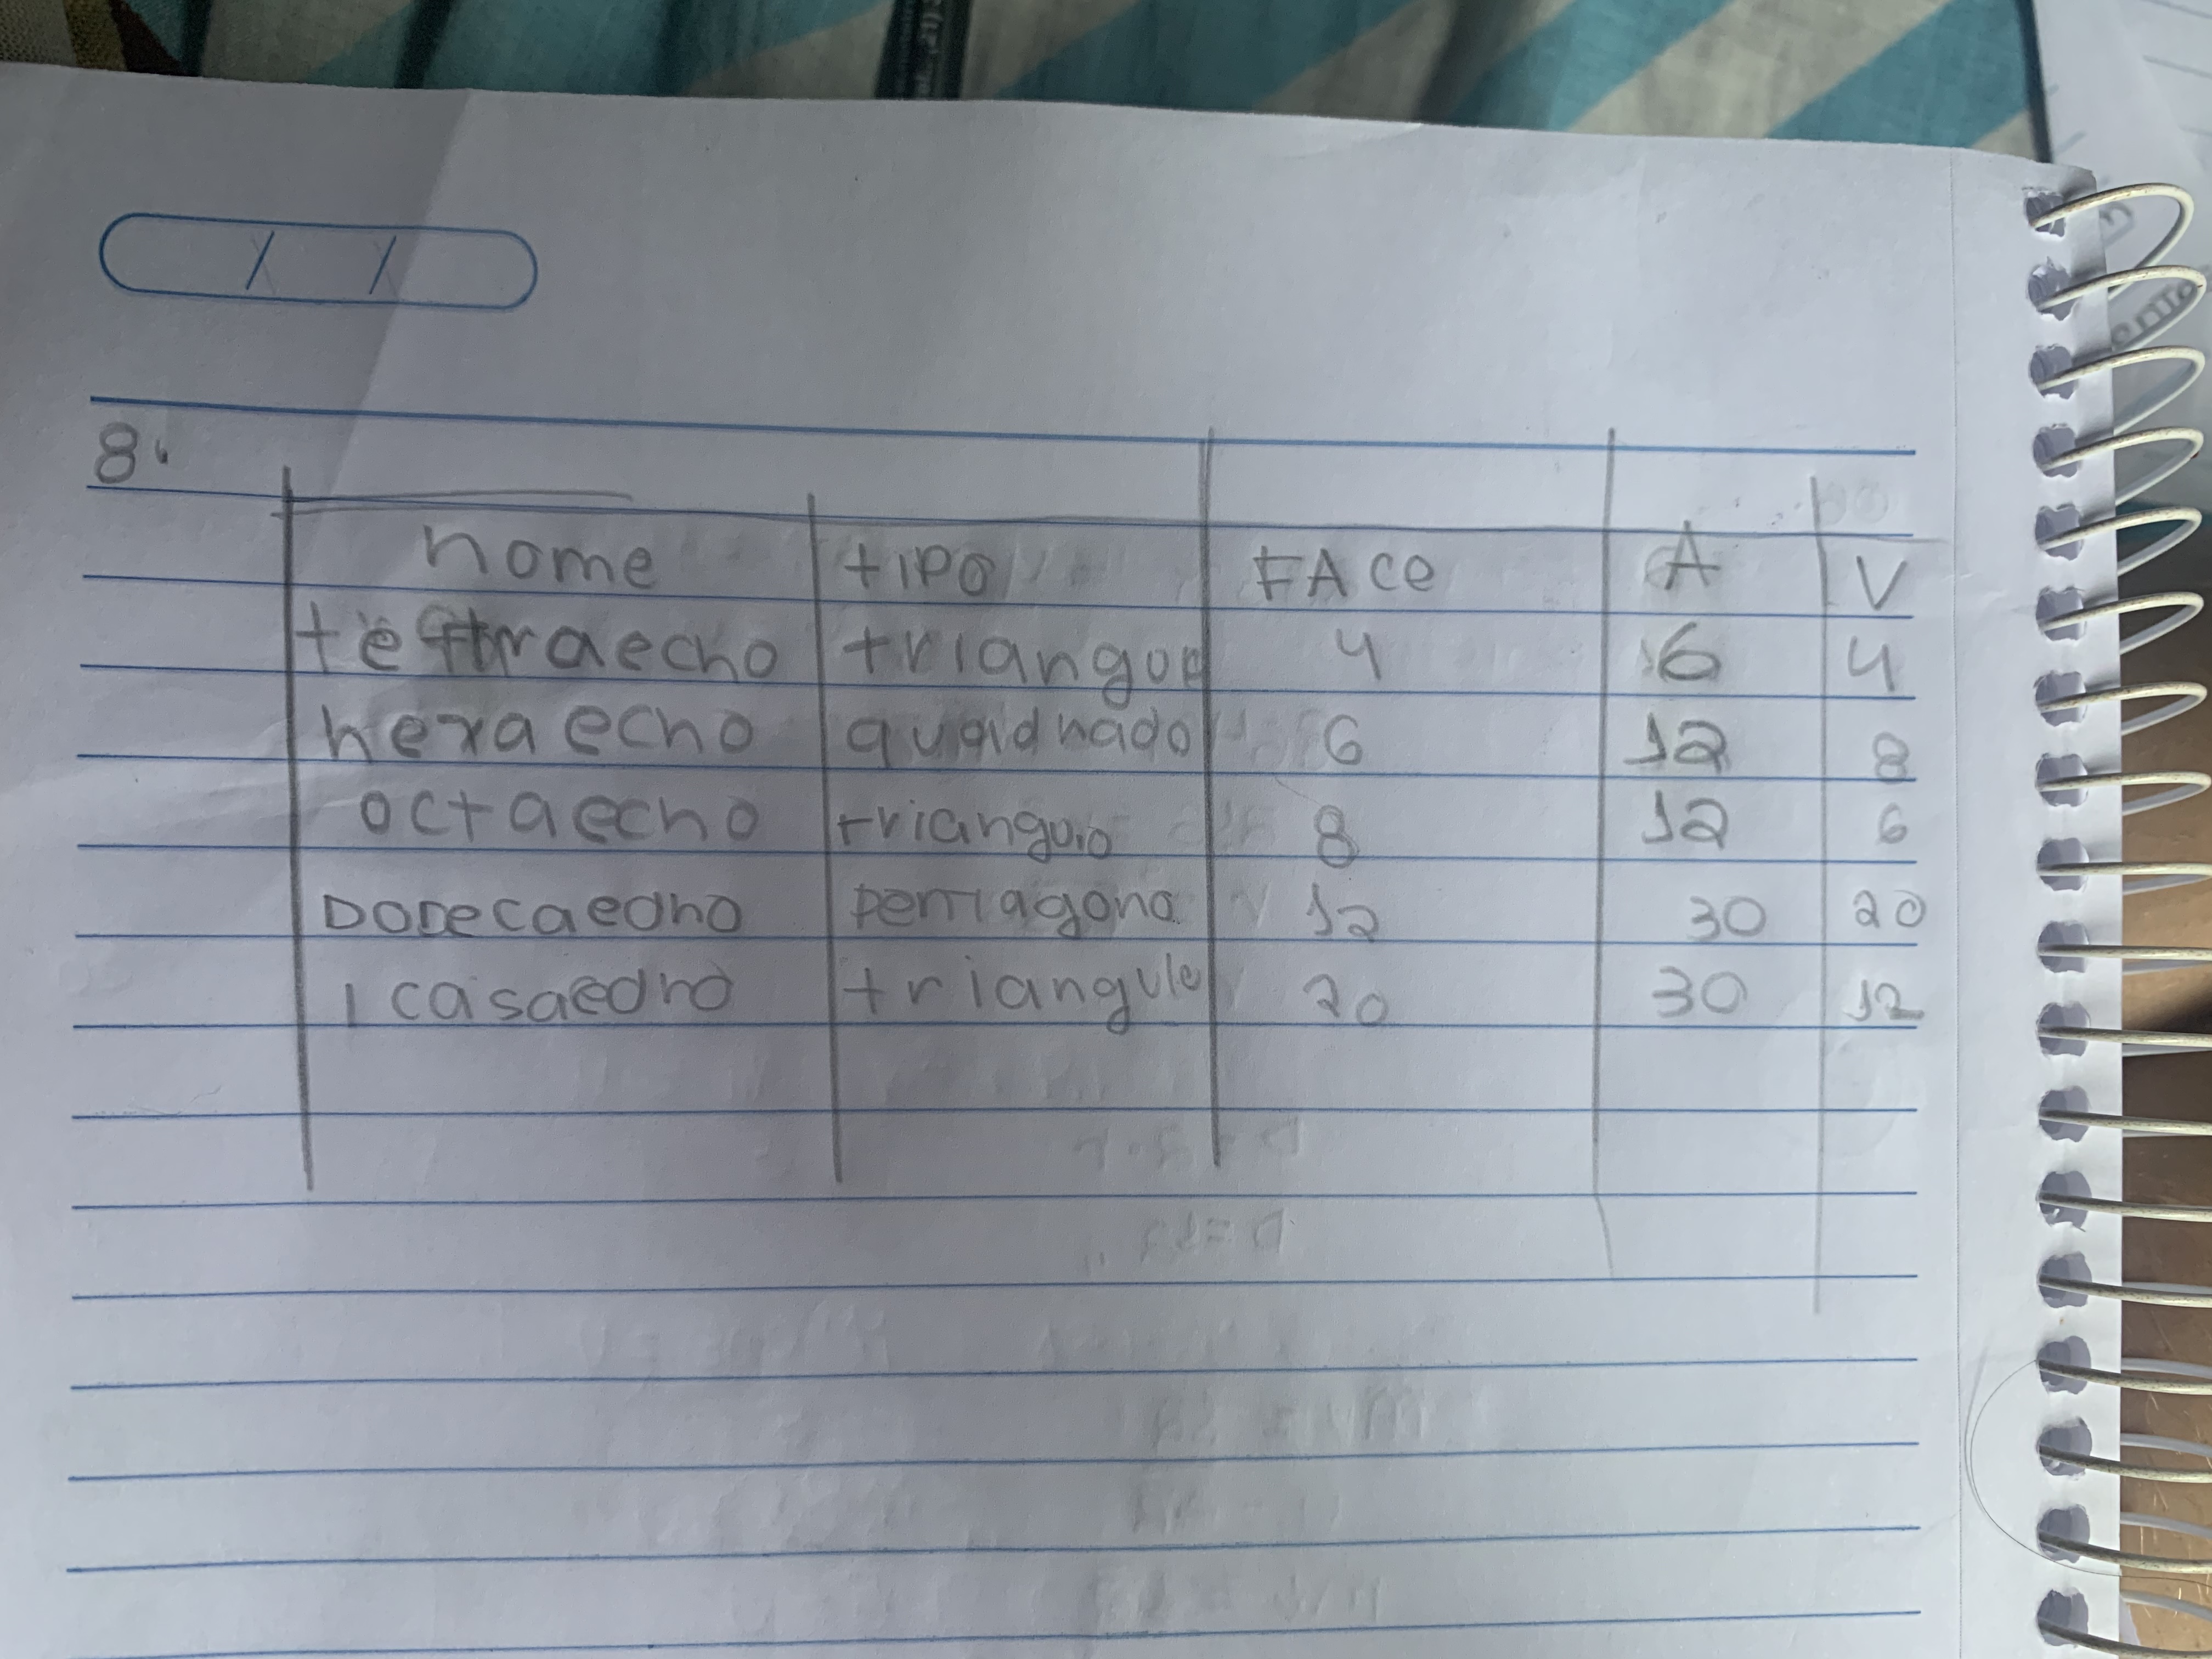 8.
nome tipo FAce A V
tetraecho triangulo 4 6 4
hexaecho quadrado 6 12 8
octaecho triangulo 8 12 6
DoDecaedho pentagono 12 30 20
Icasaedho triangulo 20 30 12